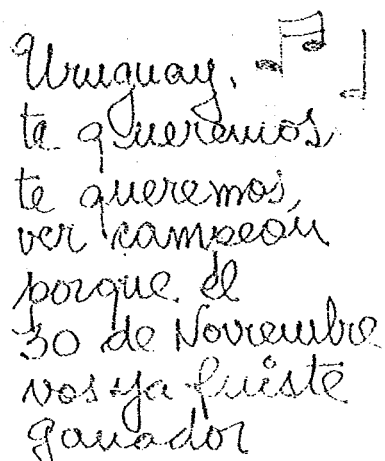 Uruguay,
te queremos
te queremos,
ver campeón
porque el
30 de Noviembre
vos ya fuiste
ganador